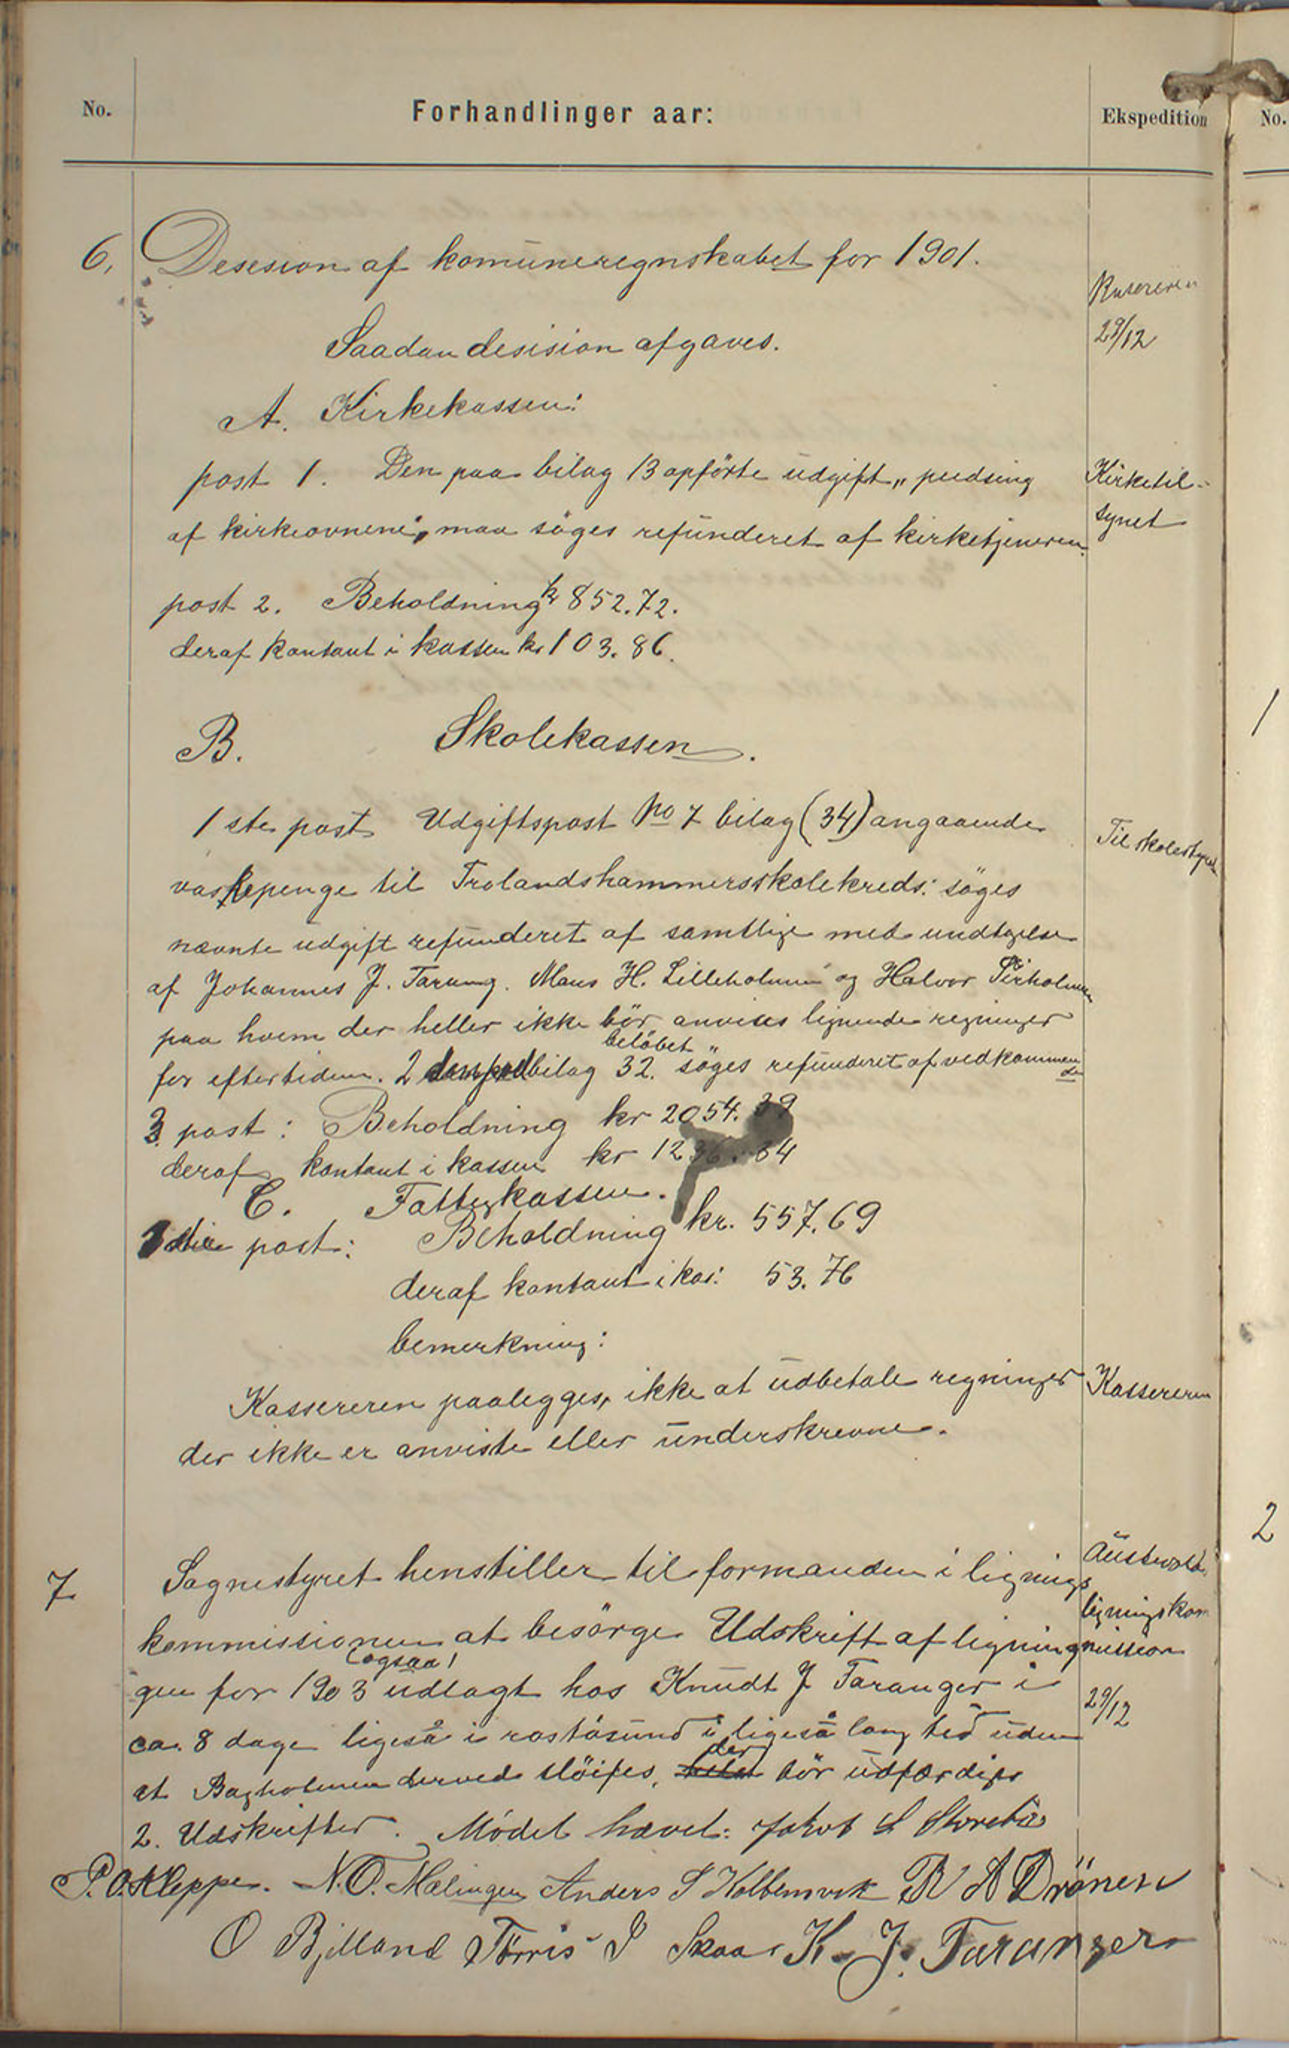 No.
Forhandlinger aar:
Ekspedition
No.
6.
Desesion af komuneregnskabet for 1901.
Kasereren
29/12
Saadan desision afgaves.
A. Kirkekassen:
post 1. Den paa bilag 13 opförte udgift „pudsing
Kirketil-
af kirkeovnene", maa söges refunderet af kirketjeneren.
synet
post 2. Beholdning kr 852.72.
deraf kontant i kassen kr 103.86.
1
B. Skolekassen.
1ste post Udgiftspost No 7 bilag (34) angaaende
Til skolestyret
vaskepenge til Trolandshammersskolekreds: söges
nævnte udgift refunderet af samtlige med undtagelse
af Johannes J. Tarung. Mons H. Lilleholmen og Halvor
paa hvem der heller ikke bör anvises lignende regninger
beløbet
for eftertiden. 2 bilag 32. söges refunderet af vedkommende
3 post: Beholdning kr 2054.39
deraf kontant i kassen kr 1236.84
C. Fattigkassen.
1ste post: Beholdning kr. 557.69
deraf kontant i kas: 53.76
bemerkning:
Kassereren paalegges, ikke at udbetale regninger
Kassereren
der ikke er anviste eller underskrevne.
2
7
Sognestyret henstiller til formanden i lignings
Austevold
kommissionen at besörge Udskrift af ligning
ligningskom
mission
(ogsaa)
gen for 1903 udlagt hos Knudt J Taranger i
29/12
ca. 8 dage ligeså i rostösund i ligeså lang tid uden
der
at Bagholmen derved slöifes, bör udfærdiges
2. Udskrifter. Mödet hævet: Jakob S Storebö
P. O. Kleppe. N. O. Mælingen Anders S Kolbensvik R A Drönen
O Bjelland Törris J Skaar K. J. Taranger